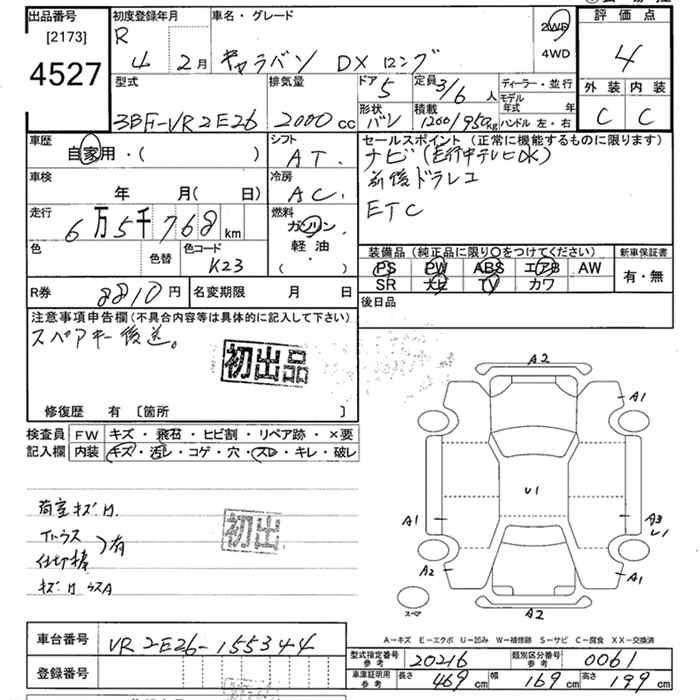 出品番号 初度登録年月 車名・グレード 評価点
[2173] R 2WD
4527 4 2月 キャラバン DX ロング 4WD 4
型式 排気量 ドア 5 定員 3/6 人 ディーラー・並行 外装 内装
モデル年式 年
3BF-VR2E26 2000 cc 形状 バン 積載 1200/950kg ハンドル 左・右 C C
車歴 シフト セールスポイント(正常に機能するものに限ります)
自家用・( ) AT. ナビ(走行中テレビOK)
車検 冷房 前後ドラレコ
年 月(日) AC. ETC
走行 燃料
6万5千768km ガソリン
色 色替 色コード 軽油 装備品(純正品に限り○をつけてください) 新車保証書
K23 ・( ) PS PW ABS エアB AW 有・無
R券 8810円 名変期限 月 日 SR ナビ TV カワ
後日品
注意事項申告欄(不具合内容等は具体的に記入して下さい)
スペアキー後送。
初出品
修復歴 有 [箇所 ]
検査員 FW キズ・飛石・ヒビ割・リペア跡・×要
記入欄 内装 キズ・汚レ・コゲ・穴・スレ・キレ・破レ
荷室キズ
有
初出
A2
A1 A1
U1
A1 A3
U1
A2 A1
A2
スペア
A-キズ E-エクボ U-凹み W-補修跡 S-サビ C-腐食 XX-交換済
車台番号 VR2E26-155344
登録番号
型式指定番号 参考 20216 類別区分番号 参考 0061
車庫証明用 参考 長さ 469cm 幅 169cm 高さ 199cm